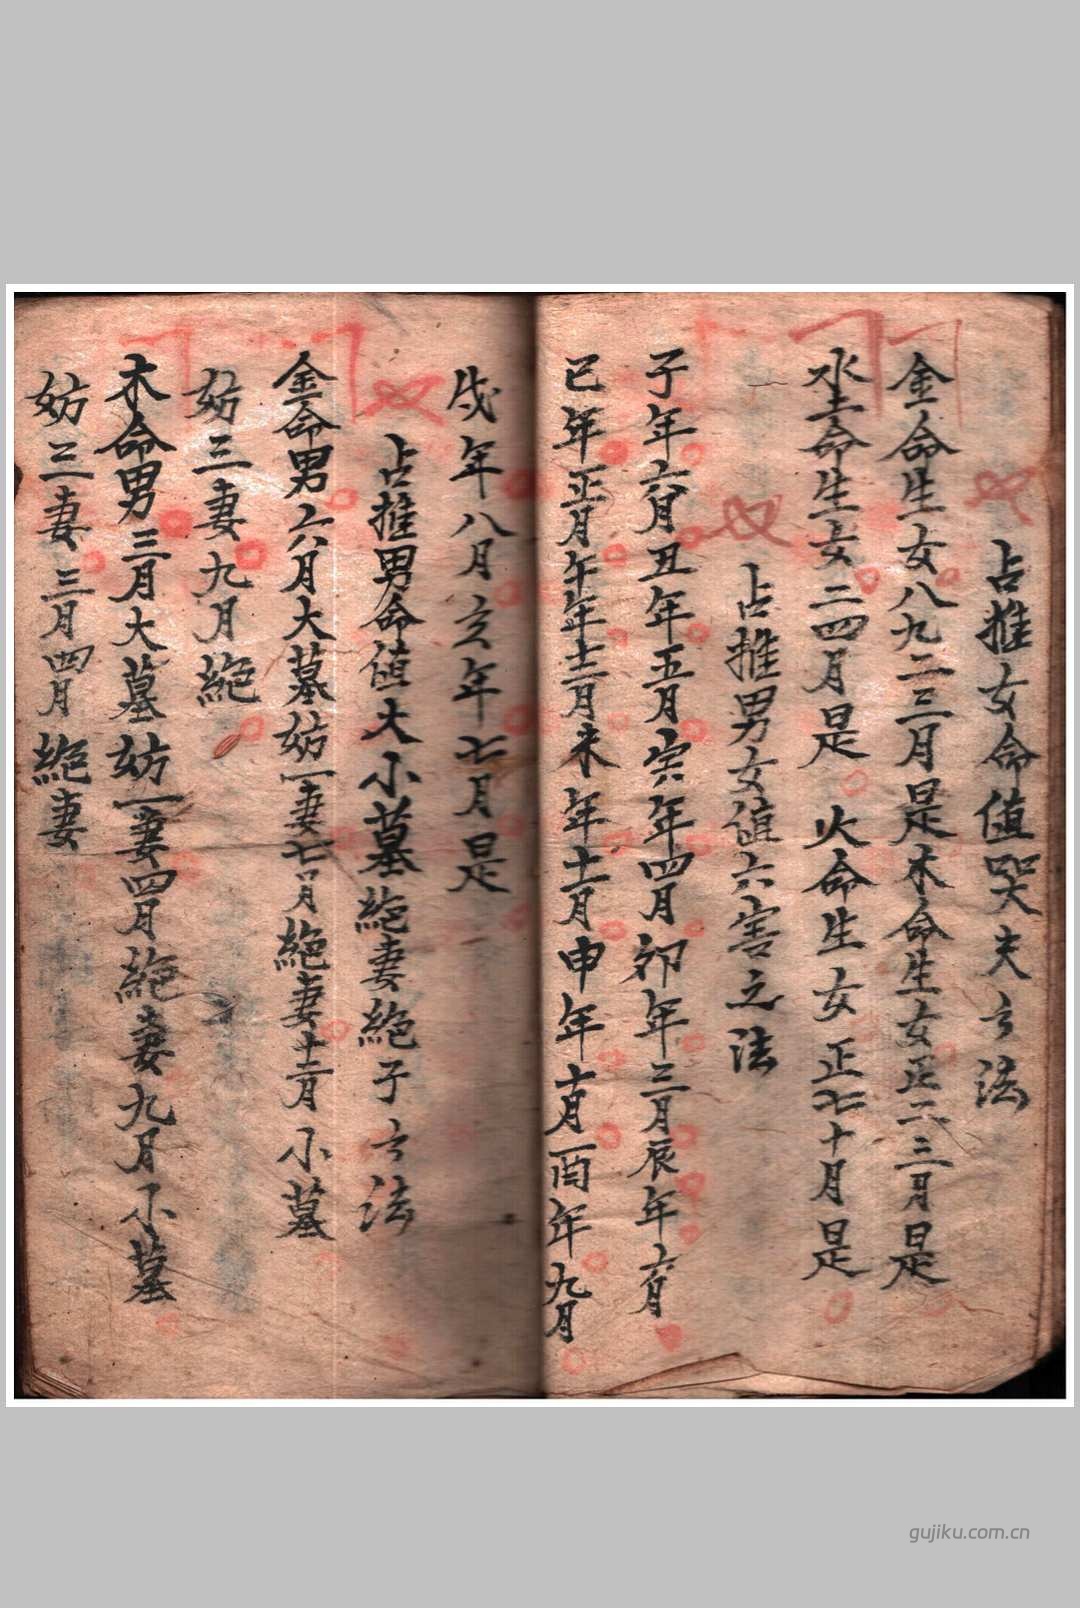 占推女命值哭夫之法
金命生女八九二三月是木命生女正二三月是
水土命生女二四月是 火命生女正七十月是
占推男女值六害之法
子年六月丑年五月寅年四月卯年三月辰年六月
巳年正月午年十二月未年十一月申年十月酉年九月
戌年八月亥年七月是
占推男命值大小墓絶妻絶子之法
金命男六月大墓妨一妻七八月絶妻十二月小墓
妨三妻九月絶
木命男三月大墓妨一妻四月絶妻九月小墓
妨三妻三月四月絶妻
gujiku.com.cn